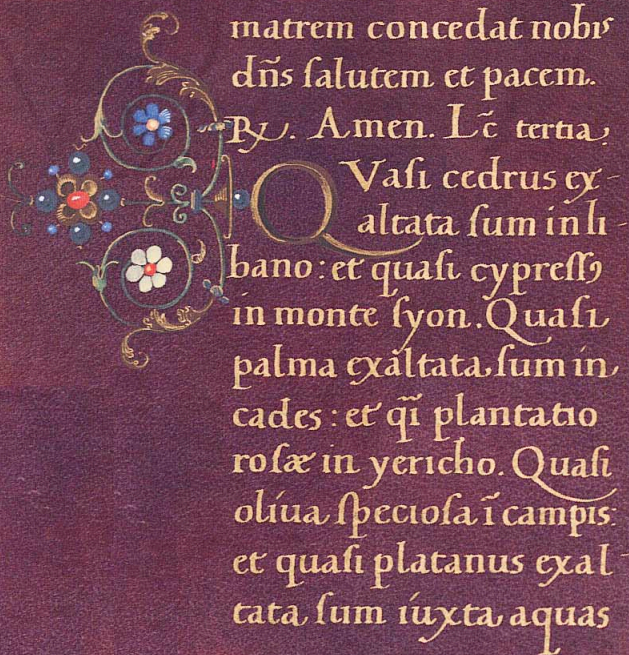 matrem concedat nobis
dn̄s ſalutem et pacem.
℞. Amen. Lc̄ tertia,
QVaſi cedrus ex-
altata ſum in li-
bano: et quaſi cypreſſꝰ
in monte ſyon. Quaſi
palma exaltata ſum in
cades: et qī plantatio
roſæ in yericho. Quaſi
olíua ſpecioſa ī campis:
et quaſi platanus exal-
tata ſum iuxta aquas